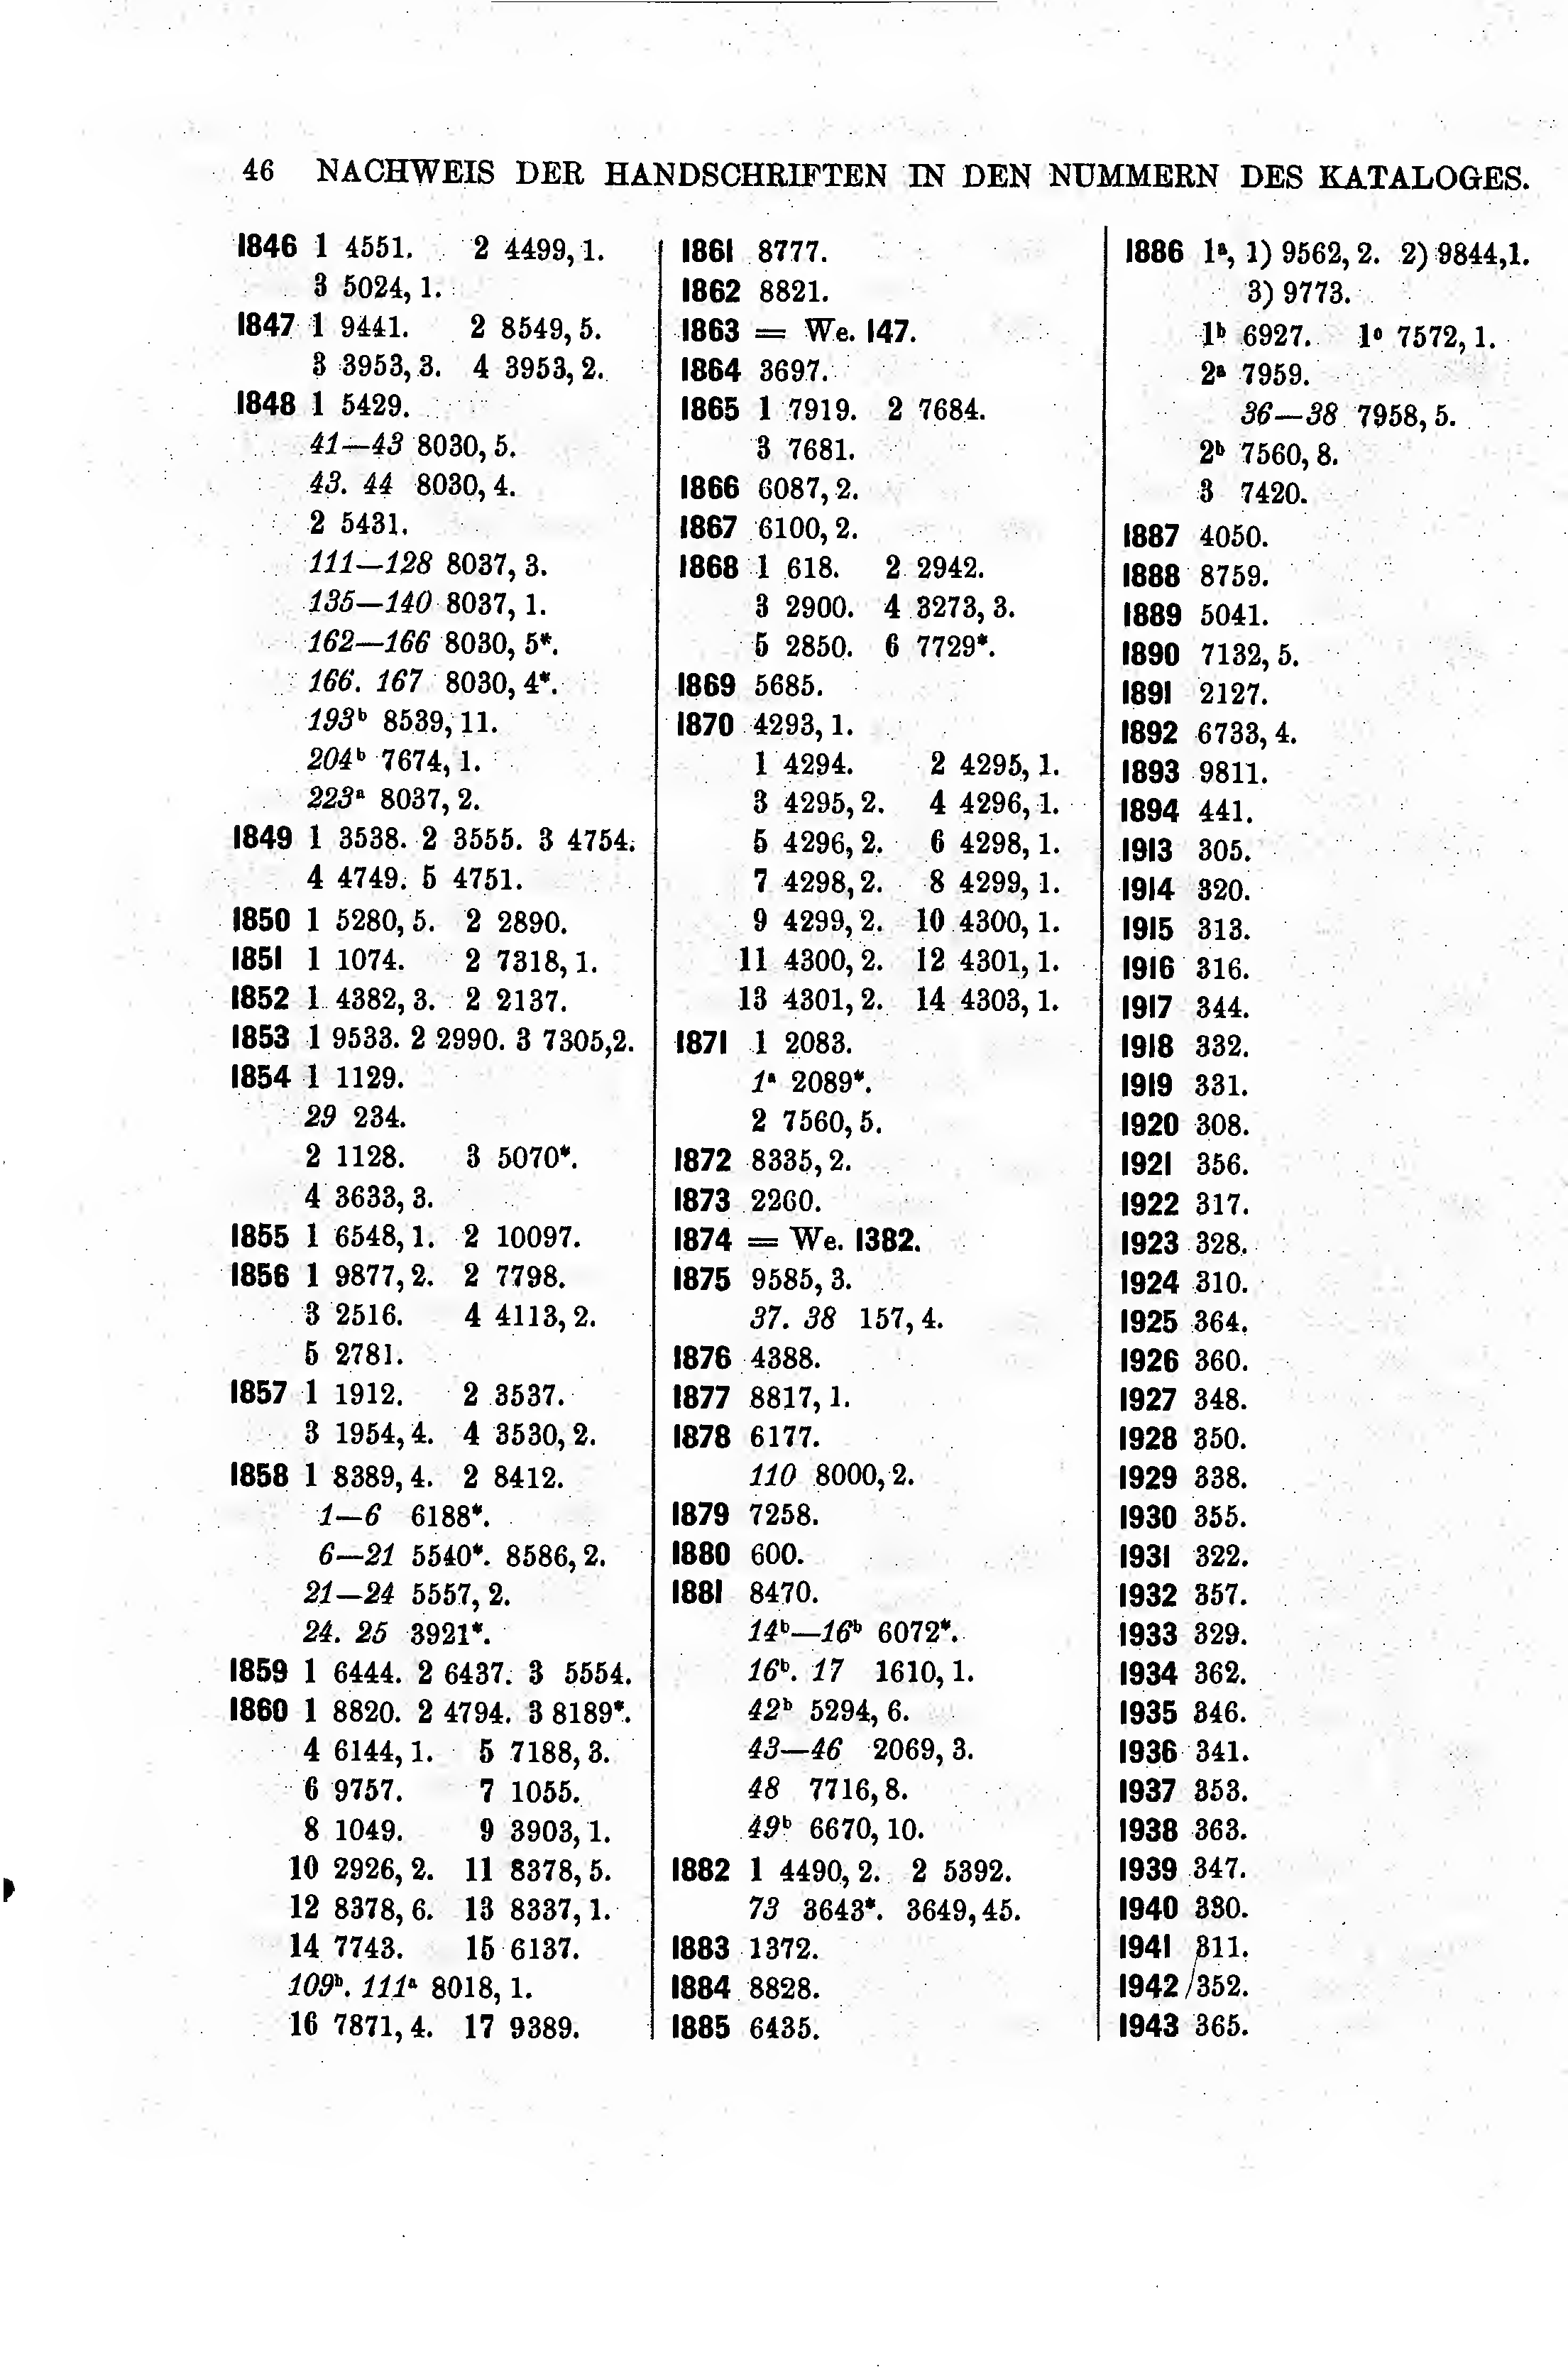 46 NACHWEIS DER HANDSCHRIFTEN IN DEN NUMMERN DES KATALOGES.
1846 1 4551. 2 4499, 1.
3 5024, 1.
1847 1 9441. 2 8549, 5.
3 3953, 3. 4 3953, 2.
1848 1 5429.
41—43 8030, 5.
43. 44 8030, 4.
2 5431.
111—128 8037, 3.
135—140 8037, 1.
162—166 8030, 5*.
166. 167 8030, 4*.
193ᵇ 8539, 11.
204ᵇ 7674, 1.
223ᵃ 8037, 2.
1849 1 3538. 2 3555. 3 4754.
4 4749. 5 4751.
1850 1 5280, 5. 2 2890.
1851 1 1074. 2 7318, 1.
1852 1 4382, 3. 2 2137.
1853 1 9533. 2 2990. 3 7305,2.
1854 1 1129.
29 234.
2 1128. 3 5070*.
4 3633, 3.
1855 1 6548, 1. 2 10097.
1856 1 9877, 2. 2 7798.
3 2516. 4 4113, 2.
5 2781.
1857 1 1912. 2 3537.
3 1954, 4. 4 3530, 2.
1858 1 8389, 4. 2 8412.
1—6 6188*.
6—21 5540*. 8586, 2.
21—24 5557, 2.
24. 25 3921*.
1859 1 6444. 2 6437. 3 5554.
1860 1 8820. 2 4794. 3 8189*.
4 6144, 1. 5 7188, 3.
6 9757. 7 1055.
8 1049. 9 3903, 1.
10 2926, 2. 11 8378, 5.
12 8378, 6. 13 8337, 1.
14 7743. 15 6137.
109ᵇ. 111ᵃ 8018, 1.
16 7871, 4. 17 9389.
1861 8777.
1862 8821.
1863 = We. 147.
1864 3697.
1865 1 7919. 2 7684.
3 7681.
1866 6087, 2.
1867 6100, 2.
1868 1 618. 2 2942.
3 2900. 4 3273, 3.
5 2850. 6 7729*.
1869 5685.
1870 4293, 1.
1 4294. 2 4295, 1.
3 4295, 2. 4 4296, 1.
5 4296, 2. 6 4298, 1.
7 4298, 2. 8 4299, 1.
9 4299, 2. 10 4300, 1.
11 4300, 2. 12 4301, 1.
13 4301, 2. 14 4303, 1.
1871 1 2083.
1ᵃ 2089*.
2 7560, 5.
1872 8335, 2.
1873 2260.
1874 = We. 1382.
1875 9585, 3.
37. 38 157, 4.
1876 4388.
1877 8817, 1.
1878 6177.
110 8000, 2.
1879 7258.
1880 600.
1881 8470.
14ᵇ—16ᵇ 6072*.
16ᵇ. 17 1610, 1.
42ᵇ 5294, 6.
43—46 2069, 3.
48 7716, 8.
49ᵇ 6670, 10.
1882 1 4490, 2. 2 5392.
73 3643*. 3649, 45.
1883 1372.
1884 8828.
1885 6435.
1886 1ᵃ, 1) 9562, 2. 2) 9844,1.
3) 9773.
1ᵇ 6927. 1ᶜ 7572, 1.
2ᵃ 7959.
36—38 7958, 5.
2ᵇ 7560, 8.
3 7420.
1887 4050.
1888 8759.
1889 5041.
1890 7132, 5.
1891 2127.
1892 6733, 4.
1893 9811.
1894 441.
1913 305.
1914 320.
1915 313.
1916 316.
1917 344.
1918 332.
1919 331.
1920 308.
1921 356.
1922 317.
1923 328.
1924 310.
1925 364.
1926 360.
1927 348.
1928 350.
1929 338.
1930 355.
1931 322.
1932 357.
1933 329.
1934 362.
1935 346.
1936 341.
1937 353.
1938 363.
1939 347.
1940 330.
1941 311.
1942 352.
1943 365.